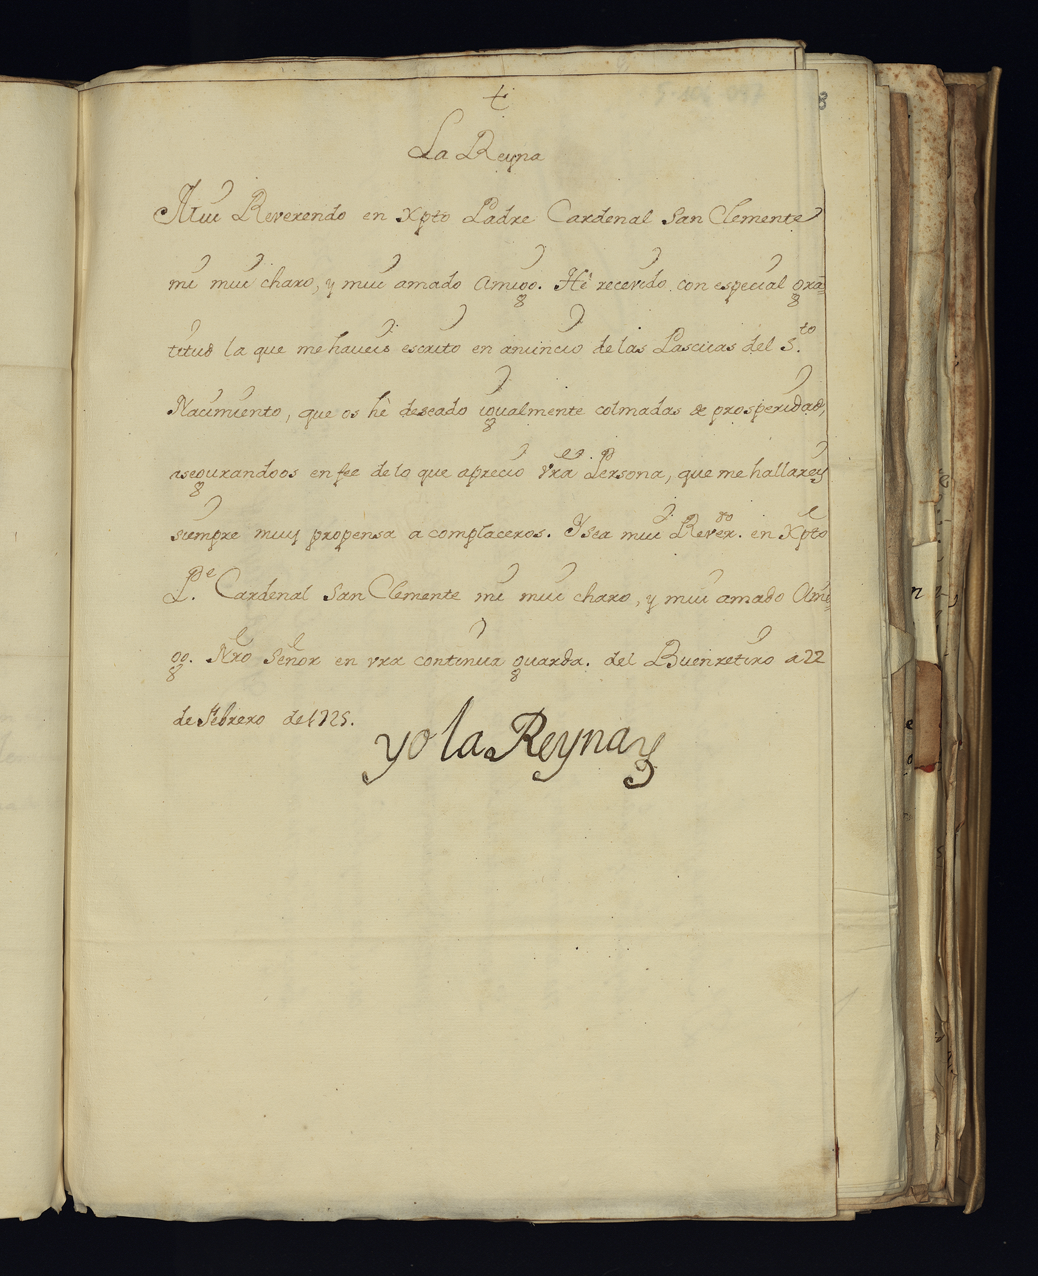 La Reyna
8
Mui Reverendo en Xpto Padre Cardenal San Clemente
mi mui charo, y mui amado Amigo. Hè recevido con especial gra=
titud la que me haveis escrito en anuncio de las Pascuas del S.to
Nacimiento, que os hè deseado igualmente colmadas de prosperidad,
asegurandoos en fee de lo que aprecio vra Persona, que me hallareys
siempre muy propensa a complaceros. Y sea mui Rever.do en Xpto
P.e Cardenal San Clemente mi mui charo, y mui amado Ami=
go. Nro Señor en vra continua guarda. del Buenretiro a 22
de Febrero de 1725.
yo la Reyna